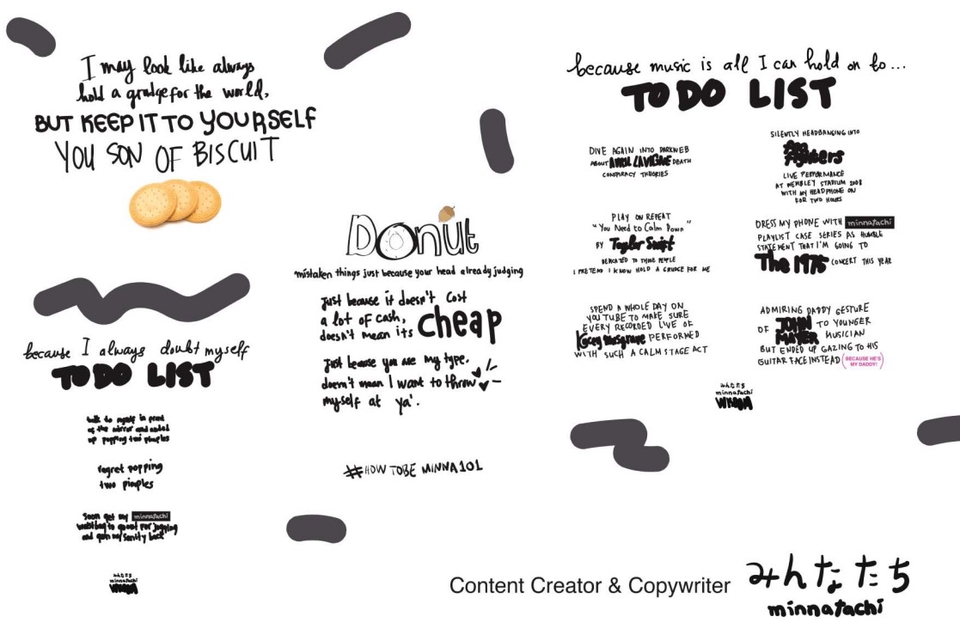 I may look like always
hold a grudge for the world,
BUT KEEP IT TO YOURSELF
YOU SON OF BISCUIT
because I always doubt myself
TO DO LIST
talk to myself in front
of the mirror and ended
up popping two pimples
regret popping
two pimples
Soon get my minnatachi
waistbag to quest for jogging
and gain my sanity back
みんなたち
minnatachi
Donut
mistaken things just because your head already judging
Just because it doesn't cost
a lot of cash,
doesn't mean its cheap
Just because you are my type,
doesn't mean I want to throw
myself at ya'.
#HOW TO BE MINNA101
because music is all I can hold on to...
TO DO LIST
DIVE AGAIN INTO DARKWEB
ABOUT AVRIL LAVIGNE DEATH
CONSPIRACY THEORIES
SILENTLY HEADBANGING INTO
Foo
Fighters
LIVE PERFORMANCE
AT WEMBLEY STADIUM 2008
WITH MY HEADPHONE ON
FOR TWO HOURS
PLAY ON REPEAT
"You Need to Calm Down"
BY Taylor Swift
DEDICATED TO THOSE PEOPLE
I PRETEND I KNOW HOLD A GRUDGE FOR ME
DRESS MY PHONE WITH minnatachi
PLAYLIST CASE SERIES AS HUMBLE
STATEMENT THAT I'M GOING TO
The 1975 CONCERT THIS YEAR
SPEND A WHOLE DAY ON
YOUTUBE TO MAKE SURE
EVERY RECORDED LIVE OF
Kacey Musgrave PERFORMED
WITH SUCH A CALM STAGE ACT
ADMIRING DADDY GESTURE
OF JOHN MAYER TO YOUNGER
MUSICIAN
BUT ENDED UP GAZING TO HIS
GUITAR FACE INSTEAD (BECAUSE HE'S
MY DADDY!)
みんなたち
minnatachi
Content Creator & Copywriter
みんなたち
minnatachi